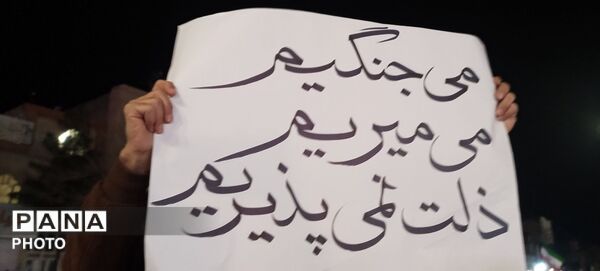 می جنگیم
می میریم
ذلت نمی پذیریم
PANA
PHOTO